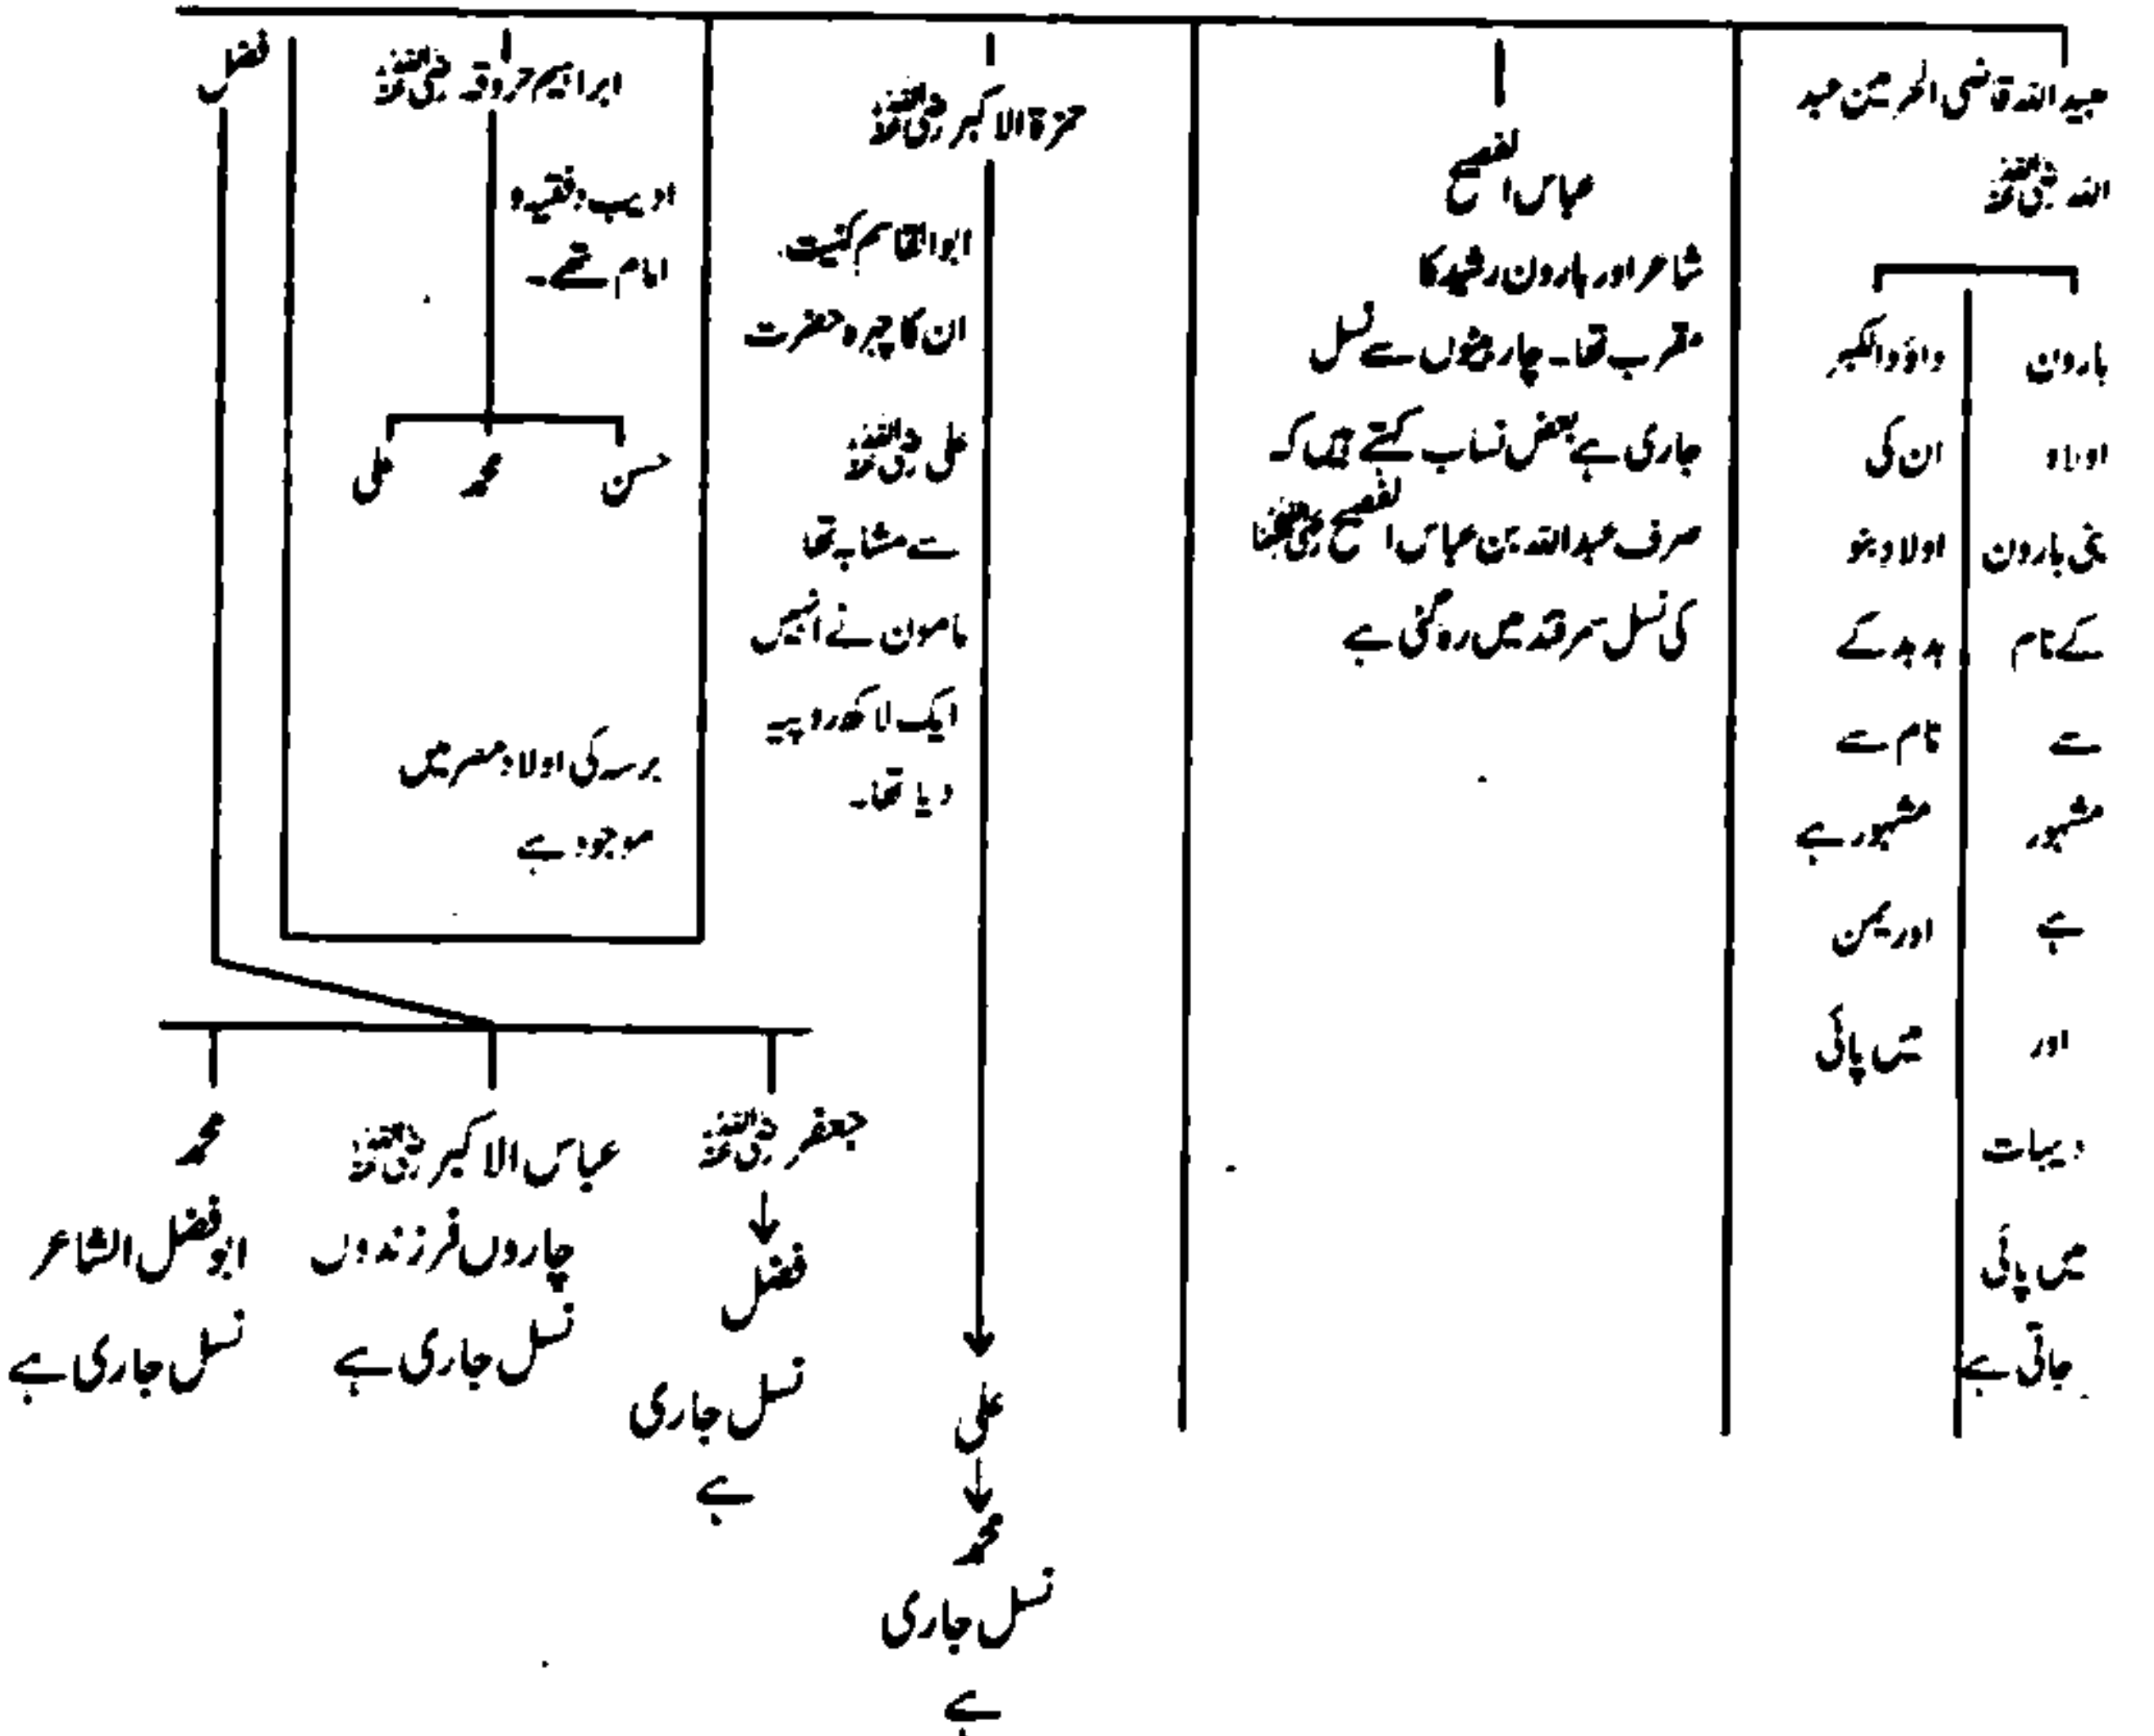 عبید اللہ قاضی الحرمین عبد
اللہ رضی اللہ عنہ
ہارون
اولاد
بنی ہارون
کے نام
سے
مشہور
ہے
اور
دیہات
میں پائی
جاتی ہے
داؤد الاکبر
ان کی
اولاد بنو
ہدہد کے
نام سے
مشہور ہے
اور یمن
میں پائی
عباس الفصیح
شاعر اور ہارون رشید کا
مقرب تھا۔ چار بیٹوں سے نسل
جاری ہے بعض نساب کہتے ہیں کہ
صرف عبد اللہ بن عباس الفصیح
کی نسل سمرقند میں رہ گئی ہے
حمزۃ الاکبر رضی اللہ عنہ
ابوالقاسم کنیت۔
ان کا چہرہ حضرت
علی رضی اللہ عنہ
سے مشابہ تھا
مامون نے انہیں
ایک لاکھ روپیہ
دیا تھا۔
علی
محمد
نسل جاری
ہے
ابراہیم جردقہ رضی اللہ عنہ
ادیب، فقیہ و
امام تھے۔
حسن
محمد
علی
ہر سہ کی اولاد مصر میں
موجود ہے
فضل
جعفر رضی اللہ عنہ
فضل
نسل جاری
ہے
عباس الاکبر رضی اللہ عنہ
چاروں فرزندوں
نسل جاری ہے
محمد
ابو فضل الشاعر
نسل جاری ہے